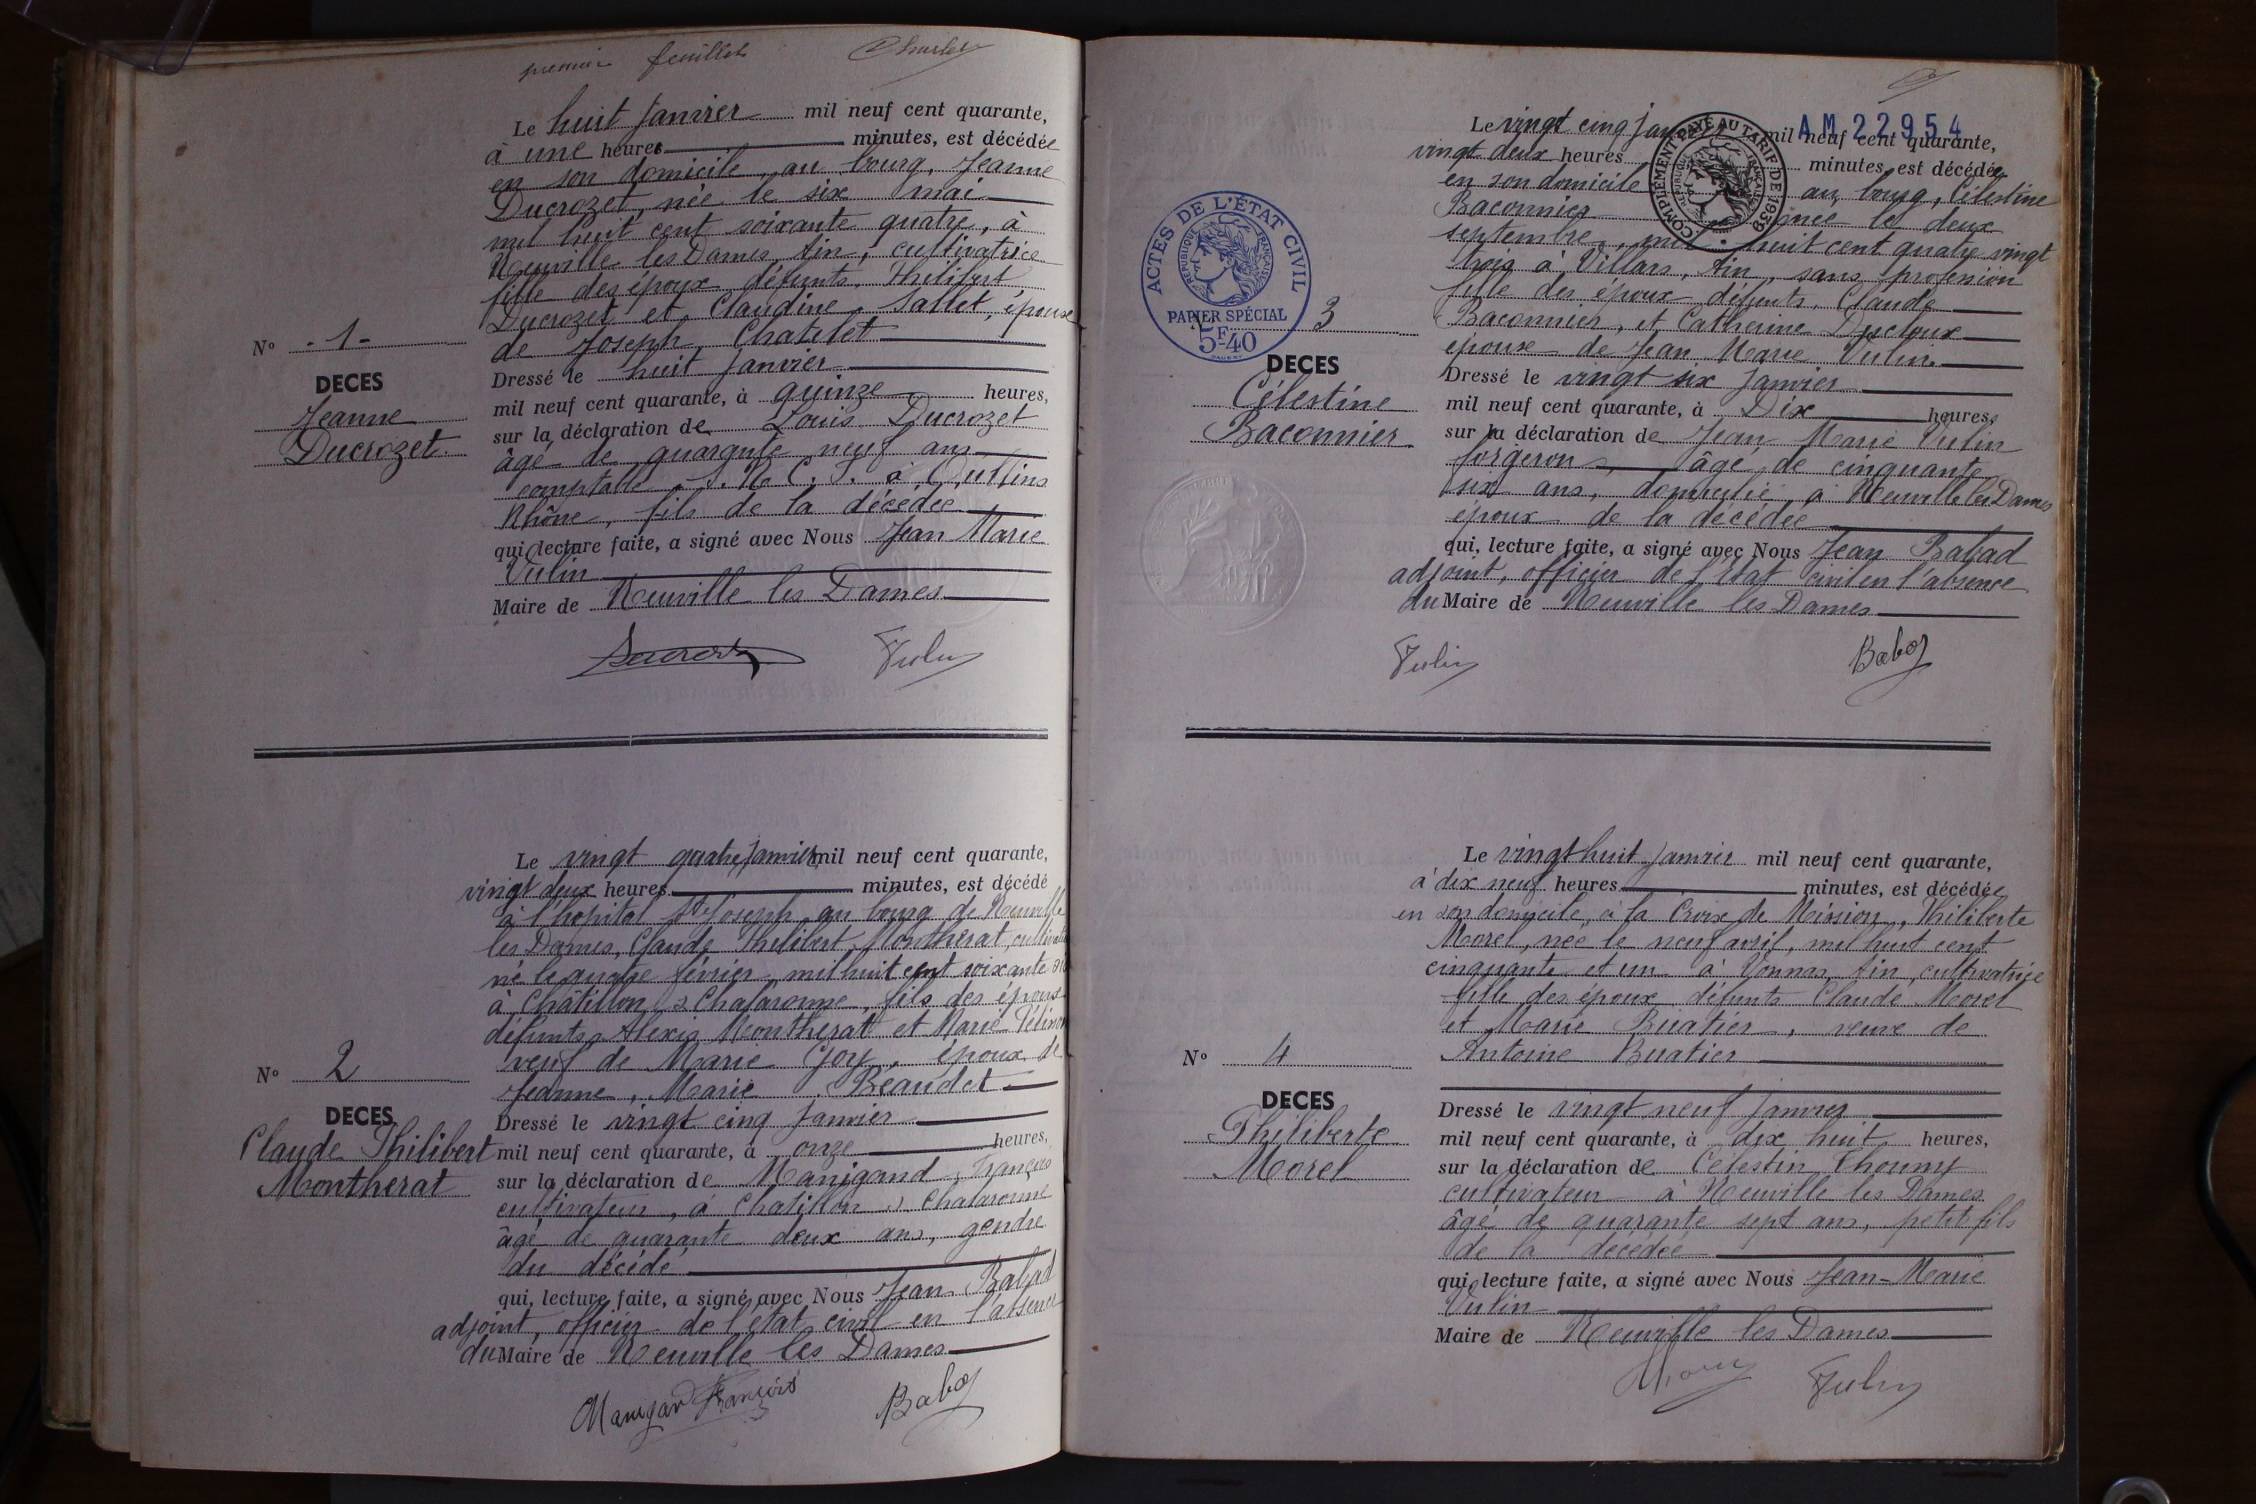 premier feuillet
Le huit Janvier mil neuf cent quarante,
à une heures minutes, est décédée
en son domicile, au bourg, Jeanne
Ducrozet, née le six mai
mil huit cent soixante quatre, à
Neuville les Dames, Ain, cultivatrice
fille des époux défunts, Philibert
Ducrozet et Claudine Sallet, épouse
de Joseph Chatelet
Nº -1-
DECES
Jeanne
Ducrozet
Dressé le huit Janvier
mil neuf cent quarante, à quinze heures,
sur la déclaration de Louis Ducrozet
âgé de quarante neuf ans
comptable S.N.C.F. à Oullins
Rhône, fils de la décédée
qui, lecture faite, a signé avec Nous Jean Marie
Vulin
Maire de Neuville les Dames
Vulin
Le vingt quatre Janvier mil neuf cent quarante,
vingt deux heures minutes, est décédé
à l'hôpital St Joseph au bourg de Neuville
les Dames, Claude Philibert Montherat,
né le quatre février, mil huit cent soixante
à Châtillon s Chalaronne, fils des époux
défunts Alexis Montherat et Marie
veuf de Marie Goy, époux de
Jeanne, Marie Béaudet
Nº 2
DECES
Claude Philibert
Montherat
Dressé le vingt cinq Janvier
mil neuf cent quarante, à onze heures,
sur la déclaration de Manigand François
cultivateur, à Chatillon s Chalaronne
âgé de quarante deux ans, gendre
du décédé
qui, lecture faite, a signé avec Nous Jean Babad
adjoint, officier de l'état civil en l'absence
du Maire de Neuville les Dames
Manigand François Babad
AM 22954
COMPLÉMENT PAYÉ AU TARIF DE 1939
RÉPUBLIQUE FRANÇAISE
Le vingt cinq mil neuf cent quarante,
vingt deux heures minutes, est décédée
en son domicile au bourg, Célestine
Baconnier née le deux
septembre, huit cent quatre vingt
trois à Villars, Ain, sans profession
fille des époux défunts, Claude
Baconnier, et Catherine Ducloux
épouse de Jean Marie Vulin
ACTES DE L'ÉTAT CIVIL
RÉPUBLIQUE FRANÇAISE
PAPIER SPÉCIAL
5F40
3
DECES
Célestine
Baconnier
Dressé le vingt six Janvier
mil neuf cent quarante, à Dix heures,
sur la déclaration de Jean Marie Vulin
forgeron, âgé de cinquante
six ans, domicilié à Neuville les Dames
époux de la décédée
qui, lecture faite, a signé avec Nous Jean Babad
adjoint, officier de l'Etat civil en l'absence
du Maire de Neuville les Dames
Vulin Babad
Le vingt huit Janvier mil neuf cent quarante,
à dix neuf heures minutes, est décédée
en son domicile, à la Croix de Mission, Philiberte
Morel, née le neuf avril, mil huit cent
cinquante et un à Vonnas, Ain, cultivatrice
fille des époux défunts Claude Morel
et Marie Buatier, veuve de
Antoine Buatier
Nº 4
DECES
Philiberte
Morel
Dressé le vingt neuf Janvier
mil neuf cent quarante, à dix huit heures,
sur la déclaration de Célestin Thoumy
cultivateur à Neuville les Dames
âgé de quarante sept ans, petit fils
de la décédée
qui, lecture faite, a signé avec Nous Jean-Marie
Vulin
Maire de Neuville les Dames
Vulin